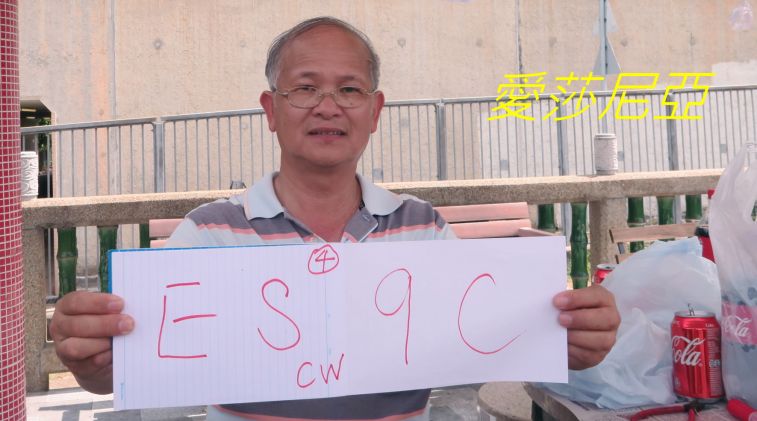 愛莎尼亞
④
ES9C
CW
Coca-Cola
Coca-Cola